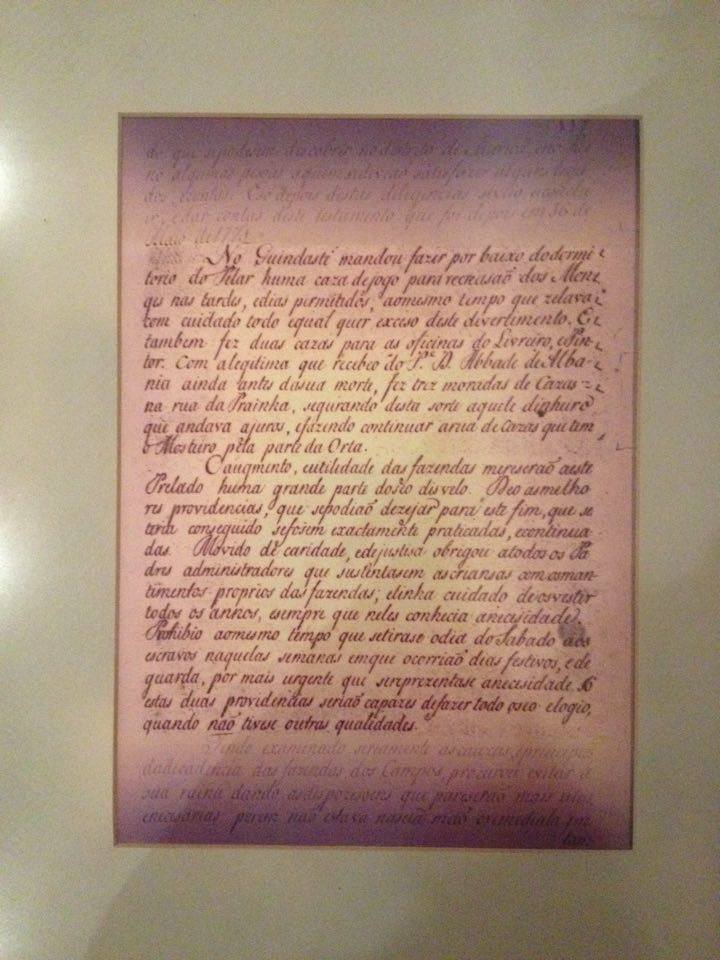 de que sepodesem descobrir no destrito de
no algumas pesoas aquem
dos. Esó depois destas deligencias
e dar contas deste testamento que foi depois em 30 de
Maio de 177
No Guindasti mandou fazer por baixo dodormi
torio do Pilar huma caza dejogo para recreasaõ dos Mon
ges nas tardes, edias permitidos, aomesmo tempo que zelava
com cuidado todo equal quer exceso deste divertimento. E
tambem fez duas cazas para as oficinas do Livreiro, ePin
tor. Com alegitima que recebeo do P.e D. Abbade de Alba-
nia ainda antes dasua morte, fez trez moradas de Cazas
na rua da Prainha, segurando desta sorte aquele dinheiro
que andava ajuros, efazendo continuar arua de Cazas que tem
o Mosturo pela parte da Orta.
O augmento, eutilidade das fazendas mereseraõ aeste
Prelado huma grande parte doseo disvelo. Deo asmelho
res providencias, que sepodiaõ dezejar para este fim, que se
teria conseguido sefosem exactamente praticadas, econtinua-
das. Movido de caridade, edejustisa obregou atodos os Pa
dres administradores que sustintasem ascriansas comosman-
timentos proprios das fazendas; etinha cuidado deosvestir
todos os annos, esempre que neles conhecia anecisidade.
Prohibio aomesmo tempo que setirase odia do Sabado aos
escravos naquelas semanas emque ocorriaõ dias festivos, ede
guarda, por mais urgente que sereprezentase anecisidade. Só
estas duas providencias seriaõ capazes defazer todo oseo elogio,
quando naõ tivese outras qualidades.
Tendo examinado seriamente ascauzas, eprincipios
dadecadencia das fazendas dos Campos, procurou evitar a
sua ruina dando asdispozisoens que pareseraõ mais
enecisarias porem naõ estava nasua maõ oremediala